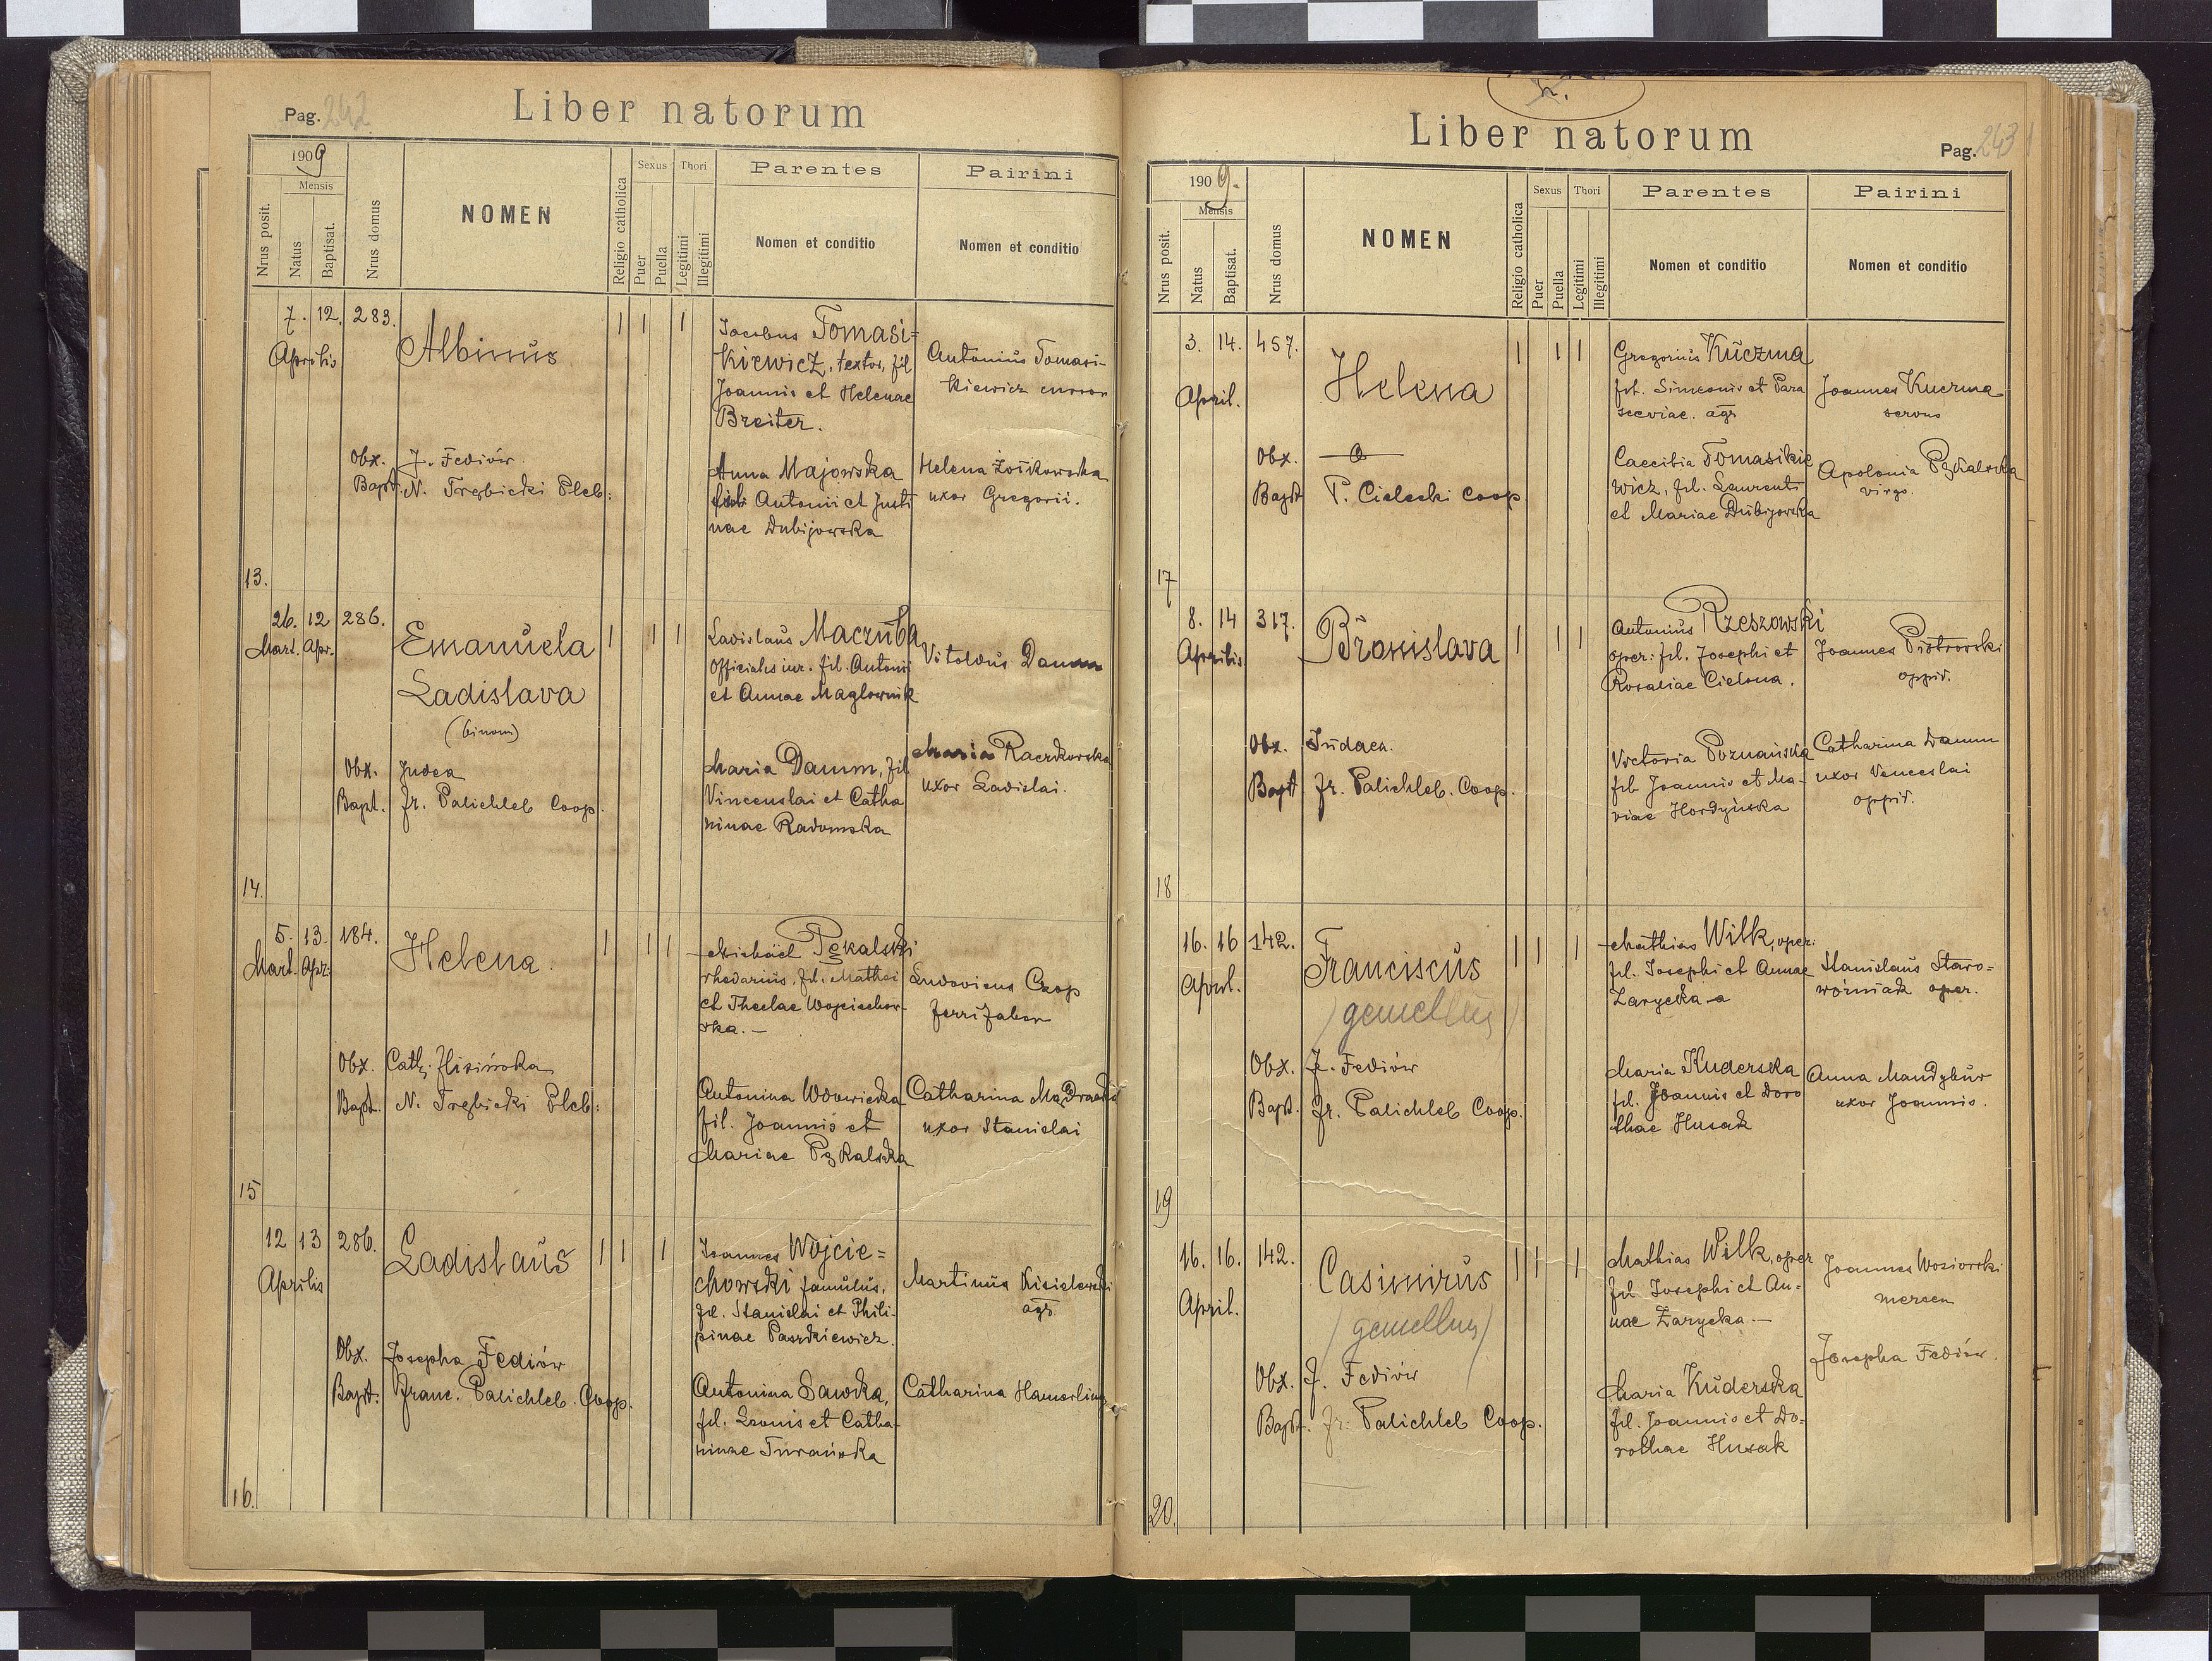 Pag. 242
Liber natorum
1909
Mensis
Nrus posit.
Natus
Baptisat.
Nrus domus
NOMEN
Religio catholica
Sexus
Puer
Puella
Thori
Legitimi
Illegitimi
Parentes
Nomen et conditio
Pairini
Nomen et conditio
13.
7. 12. 283.
Aprilis
Albinus
1 1 1
Jacobus Tomasi=
kiewicz, textor, fil
Joannis et Helenae
Breiter.
Antonius Tomasi-
kiewicz
Obx. J. Fediów.
Bapt. N. Trębicki Pleb:
Anna Majowska
Antonii et Justi
nae Dubijowska
Helena
uxor Gregorii.
14.
26. 12 286.
Mart. Apr.
Emanuela
Ladislava
(binom)
1 1 1
Ladislaus Maczuba
Officialis iur. fil. Antonii
et Annae Maglownik
Vitoldus Damm
Obx. Judea
Bapt. Fr. Palichleb Coop.
Maria Damm, fil
Vincenslai et Catha
rinae Radomska
Maria Raczkowska
uxor Ladislai.
15
5. 13. 184.
Mart. Apr:
Helena.
1 1 1
Michäel Pękalski
rhedarius, fil. Mathei
et Theclae Wojciechow-
ska. —
Ludovicus Czop
ferrifaber
Obx. Cath.
Bapt. N. Trębicki Pleb:
Antonina Wdowicka
fil. Joannis et
Mariae Pękalska
Catharina
uxor Stanislai
16.
12 13 286.
Aprilis
Ladislaus
1 1 1
Joannes Wojcie=
chowski famulus,
fil. Stanislai et Phili-
pinae Paszkiewicz.
Martinus Kisielewski
agr.
Obx. Josepha Fediów
Bapt. Franc. Palichleb. Coop.
Antonina Sawka,
fil. Leonis et Catha-
rinae Turańska
Catharina Hamerling
Liber natorum
Pag. 243
1909.
Mensis
Nrus posit.
Natus
Baptisat.
Nrus domus
NOMEN
Religio catholica
Sexus
Puer
Puella
Thori
Legitimi
Illegitimi
Parentes
Nomen et conditio
Pairini
Nomen et conditio
17
3. 14. 457.
April.
Helena
1 1 1
Gregorius Kuczma
fil. Simeonis et Para
sceviae. agr
Joannes Kuczma
servus
Obx.
Bapt P. Cielecki Coop.
Caecilia Tomasikie
wicz, fil. Laurenti
et Mariae Dubijowska
Apolonia Pękalska
virgo.
18
8. 14 317.
Aprilis
Bronislava
1 1 1
Antonius Rzeszowski
oper: fil. Josephi et
Rosaliae Cielona.
Joannes Piotrowski
oppid.
Obx. Judaea.
Bapt Fr. Palichleb. Coop.
Victoria Poznańska
fil. Joannis et Ma-
riae Hordyńska
Catharina Damm
uxor Venceslai
oppid.
19
16. 16 142.
April.
Franciscus
(gemellus)
1 1 1
Mathias Wilk, oper:
fil. Josephi et Annae
Zarycka
Stanislaus Staro=
woźniak oper.
Obx. J. Fediów
Bapt. Fr. Palichleb Coop.
Maria Kuderska
fil. Joannis et Doro
thae Husak
Anna Mandybur
uxor Joannis.
20.
16. 16. 142.
April.
Casimirus
(gemellus)
1 1 1
Mathias Wilk, oper
fil Josephi et An=
nae Zarycka. —
Joannes
mercen
Josepha Fediów.
Obx. J. Fediów
Bapt. Fr. Palichleb Coop.
Maria Kuderska
fil. Joannis et Do=
rothae Husak